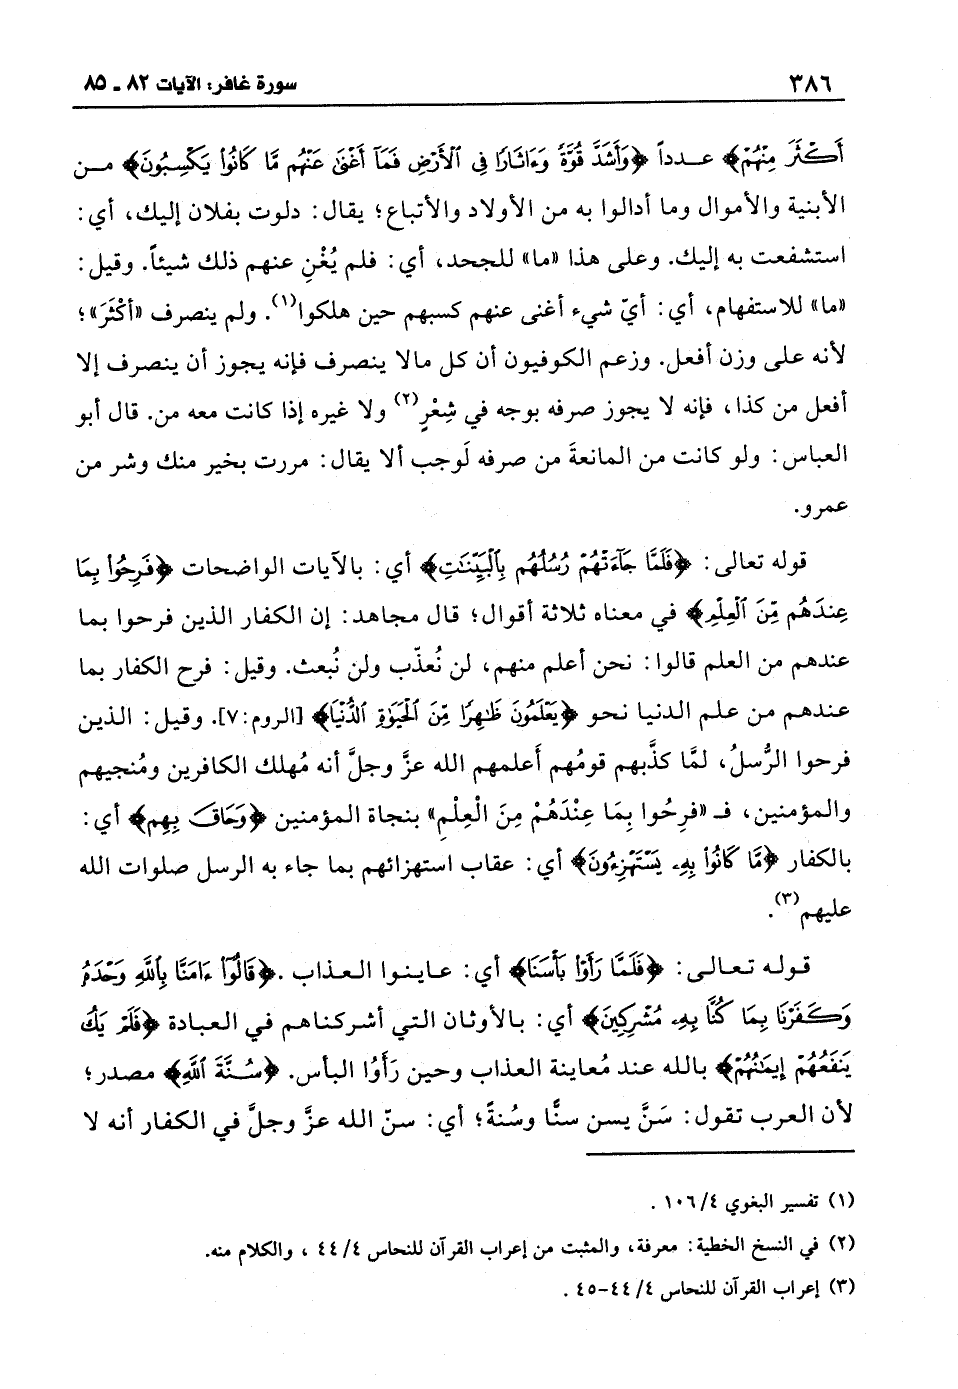 ٣٨٦
سورة غافر: الآيات ٨٢ ـ ٨٥
أَكْثَرَ مِنْهُمْ﴾ عـدداً ﴿وَأَشَدَّ قُوَّةً وَءَاثَارًا فِي ٱلْأَرْضِ فَمَآ أَغْنَىٰ عَنْهُم مَّا كَانُوا۟ يَكْسِبُونَ﴾ مـن
الأبنية والأموال وما أدالوا به من الأولاد والأتباع؛ يقال: دلوت بفلان إليك، أي:
استشفعت به إليك. وعلى هذا «ما» للجحد، أي: فلم يُغْنِ عنهم ذلك شيئاً. وقيل:
«ما» للاستفهام، أي: أيّ شيء أغنى عنهم كسبهم حين هلكوا(١). ولم ينصرف «أكْثَرَ»؛
لأنه على وزن أفعل. وزعم الكوفيون أن كل مالا ينصرف فإنه يجوز أن ينصرف إلا
أفعل من كذا، فإنه لا يجوز صرفه بوجه في شِعْرٍ(٢) ولا غيره إذا كانت معه من. قال أبو
العباس: ولو كانت من المانعةَ من صرفه لَوجب ألا يقال: مررت بخير منك وشر من
عمرو.
قوله تعالى: ﴿فَلَمَّا جَآءَتْهُمْ رُسُلُهُم بِٱلْبَيِّنَٰتِ﴾ أي: بالآيات الواضحات ﴿فَرِحُوا۟ بِمَا
عِندَهُم مِّنَ ٱلْعِلْمِ﴾ في معناه ثلاثة أقوال؛ قال مجاهد: إن الكفار الذين فرحوا بما
عندهم من العلم قالوا: نحن أعلم منهم، لن نُعذّب ولن نُبعث. وقيل: فرح الكفار بما
عندهم من علم الدنيا نحو ﴿يَعْلَمُونَ ظَٰهِرًا مِّنَ ٱلْحَيَوٰةِ ٱلدُّنْيَا﴾ [الروم:٧]. وقيل: الذين
فرحوا الرُّسلُ، لمَّا كذَّبهم قومُهم أَعلمهم الله عزَّ وجلَّ أنه مُهلك الكافرين ومُنجيهم
والمؤمنين، فـ «فرِحُوا بِمَا عِنْدَهُمْ مِنَ الْعِلْمِ» بنجاة المؤمنين ﴿وَحَاقَ بِهِم﴾ أي:
بالكفار ﴿مَّا كَانُوا۟ بِهِۦ يَسْتَهْزِءُونَ﴾ أي: عقاب استهزائهم بما جاء به الرسل صلوات الله
عليهم(٣).
قوله تعالى: ﴿فَلَمَّا رَأَوْا۟ بَأْسَنَا﴾ أي: عاينوا العذاب .﴿قَالُوٓا۟ ءَامَنَّا بِٱللَّهِ وَحْدَهُۥ
وَكَفَرْنَا بِمَا كُنَّا بِهِۦ مُشْرِكِينَ﴾ أي: بالأوثان التي أشركناهم في العبادة ﴿فَلَمْ يَكُ
يَنفَعُهُمْ إِيمَٰنُهُمْ﴾ بالله عند مُعاينة العذاب وحين رَأَوُا البأس. ﴿سُنَّةَ ٱللَّهِ﴾ مصدر؛
لأن العرب تقول: سَنَّ يسن سنًّا وسُنةً؛ أي: سنّ الله عزَّ وجلَّ في الكفار أنه لا
(١) تفسير البغوي ٤/ ١٠٦ .
(٢) في النسخ الخطية: معرفة، والمثبت من إعراب القرآن للنحاس ٤/ ٤٤ ، والكلام منه.
(٣) إعراب القرآن للنحاس ٤/ ٤٤-٤٥ .